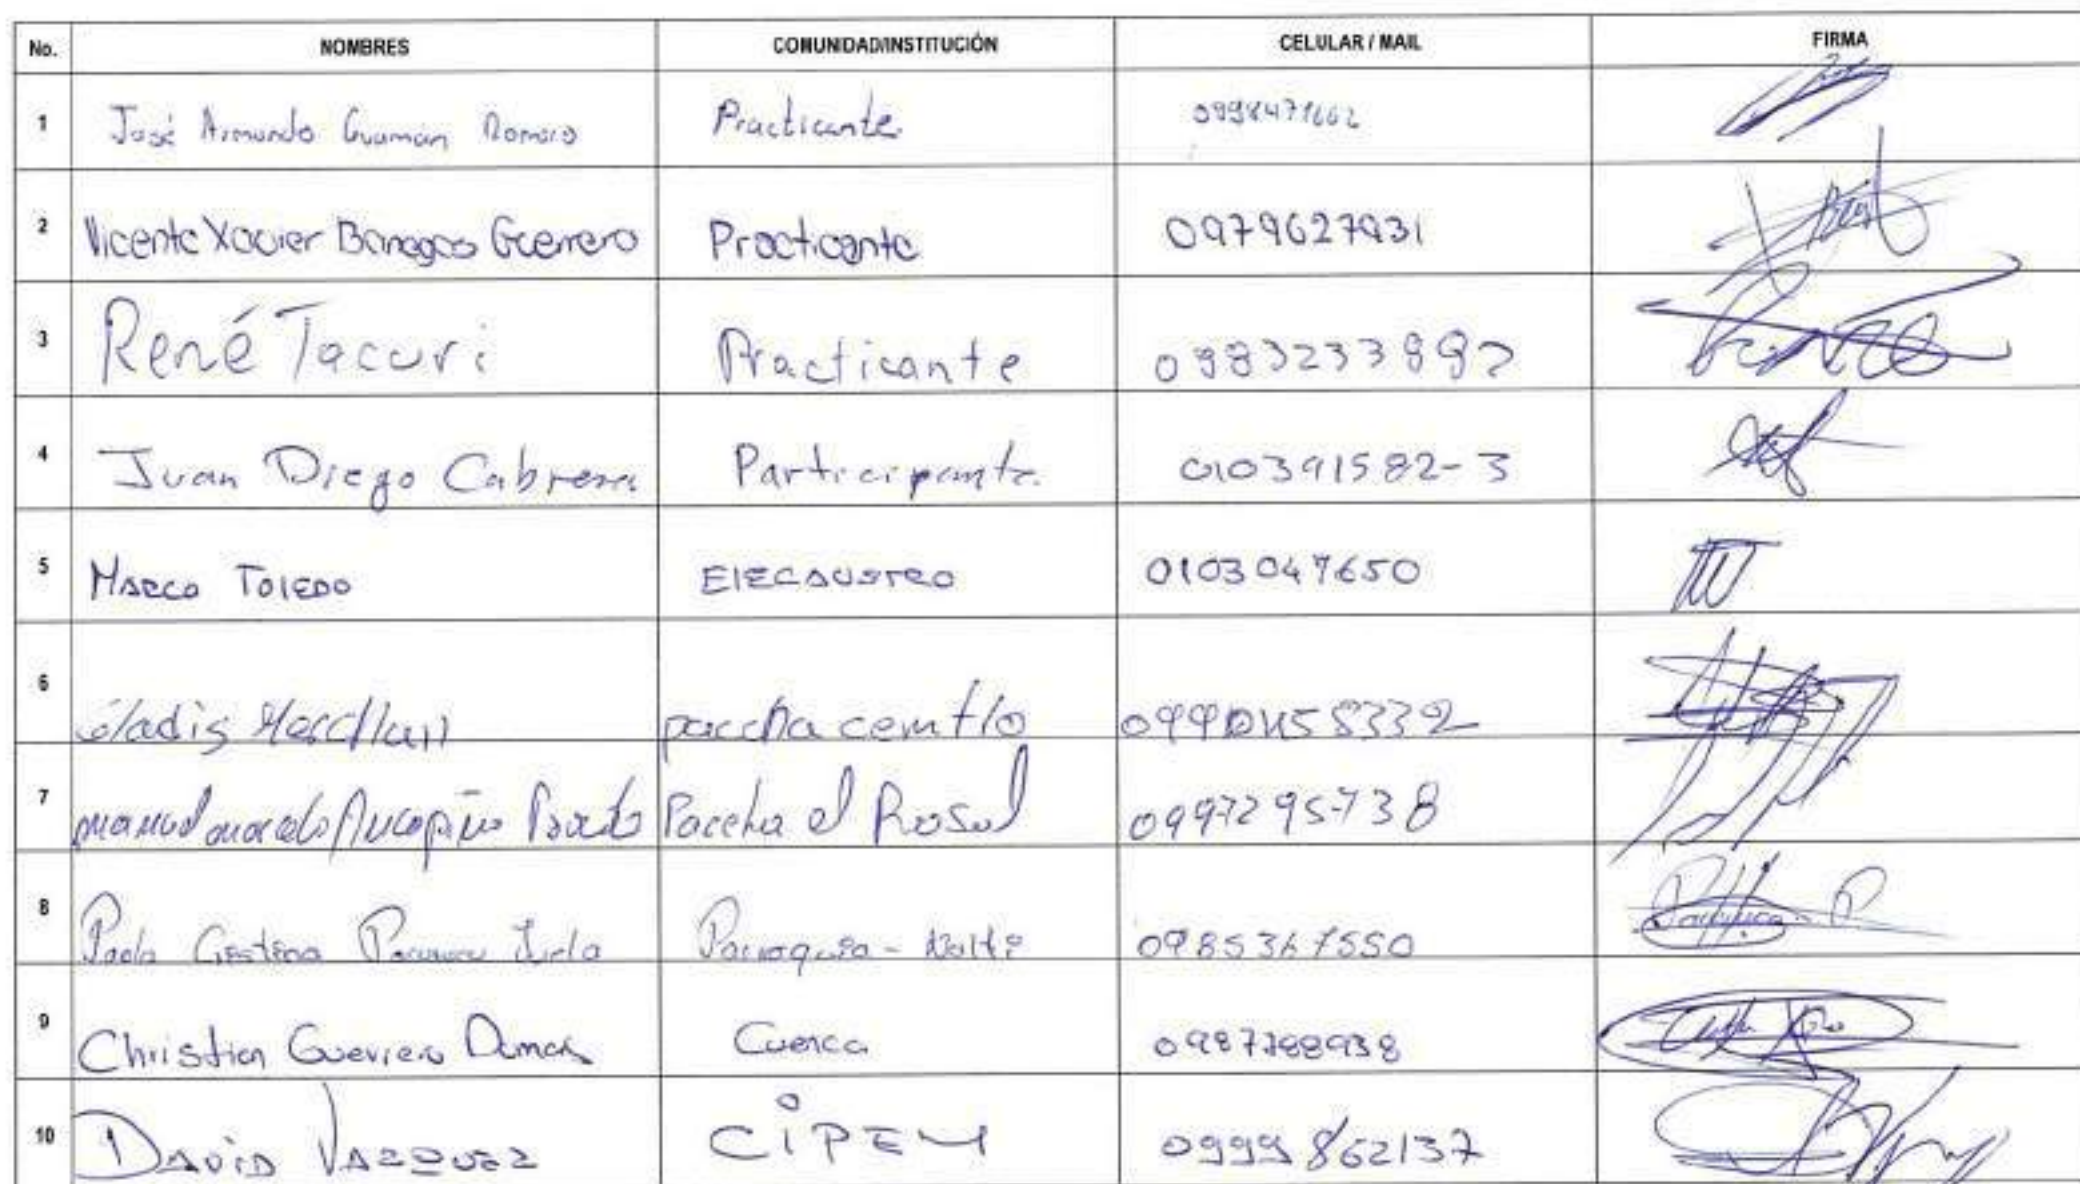 No. NOMBRES COMUNIDAD/INSTITUCIÓN CELULAR / MAIL FIRMA
1 José Armando Guamán Romero Practicante 0998471662
2 Vicente Xavier Banegas Guerrero Practicante 0979627931
3 René Tacuri Practicante 0983233892
4 Juan Diego Cabrera Participante 010391582-3
5 MARCO TOLEDO ElECAUSTRO 0103047650
6 Gladis Merchan paccha centro
7 manuel marcelo Paccha el Rosal 0997295738
8 Paola Cristina Parroquia - 0985367550
9 Christian Guerrero Dumas Cuenca 0987288938
10 DAVID VAZQUEZ CIPEM 0999862137